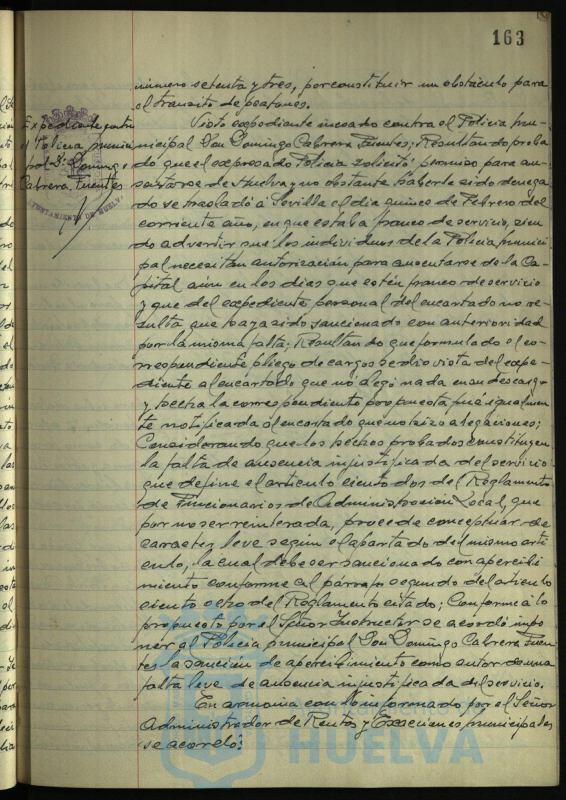 163
número setenta y tres, por constituir un obstáculo para
el transito de peatones.
Expediente contra
el Policia munici
pal D. Domingo
Cabrera Fuentes
AYUNTAMIENTO DE HUELVA
Visto expediente incoado contra el Policia mu-
nicipal Don Domingo Cabrera Fuentes; Resultando proba
do que el expresado Policia solicitó permiso para au-
sentarse de Huelva y no obstante haberle sido denega
do se trasladó a Sevilla el dia quince de Febrero del
corriente año, en que estaba franco de servicio, sien
do advertir que los individuos de la Policia munici
pal necesitan autorización para ausentarse de la Ca-
pital aún en los dias que estén franco de servicio
y que del expediente personal del encartado no re-
sulta que haya sido sancionado con anterioridad
por la misma falta; Resultando que formulado el co-
rrespondiente pliego de cargos se dio vista del expe-
diente al encartado que no alegó nada en su descargo
y hecha la correspondiente propuesta fué igualmen
te notificada al encartado que no hizo alegaciones;
Considerando que los hechos probados constituyen
la falta de ausencia injustificada del servicio
que define el articulo ciento dos del Reglamento
de Funcionarios de Administración Local, que
por no ser reiterada, procede conceptuar de
caracter leve según el apartado del mismo arti-
culo, la cual debe ser sancionado con apercibi
miento conforme al párrafo segundo del articulo
ciento ocho del Reglamento citado; Conforme a lo
propuesto por el Señor Instructor se acordó impo
ner al Policia municipal Don Domingo Cabrera Fuen
tes la sanción de apercibimiento como autor de una
falta leve de ausencia injustificada del servicio.
En armonia con lo informado por el Señor
Administrador de Rentas y Exacciones municipales
se acordó:
HUELVA